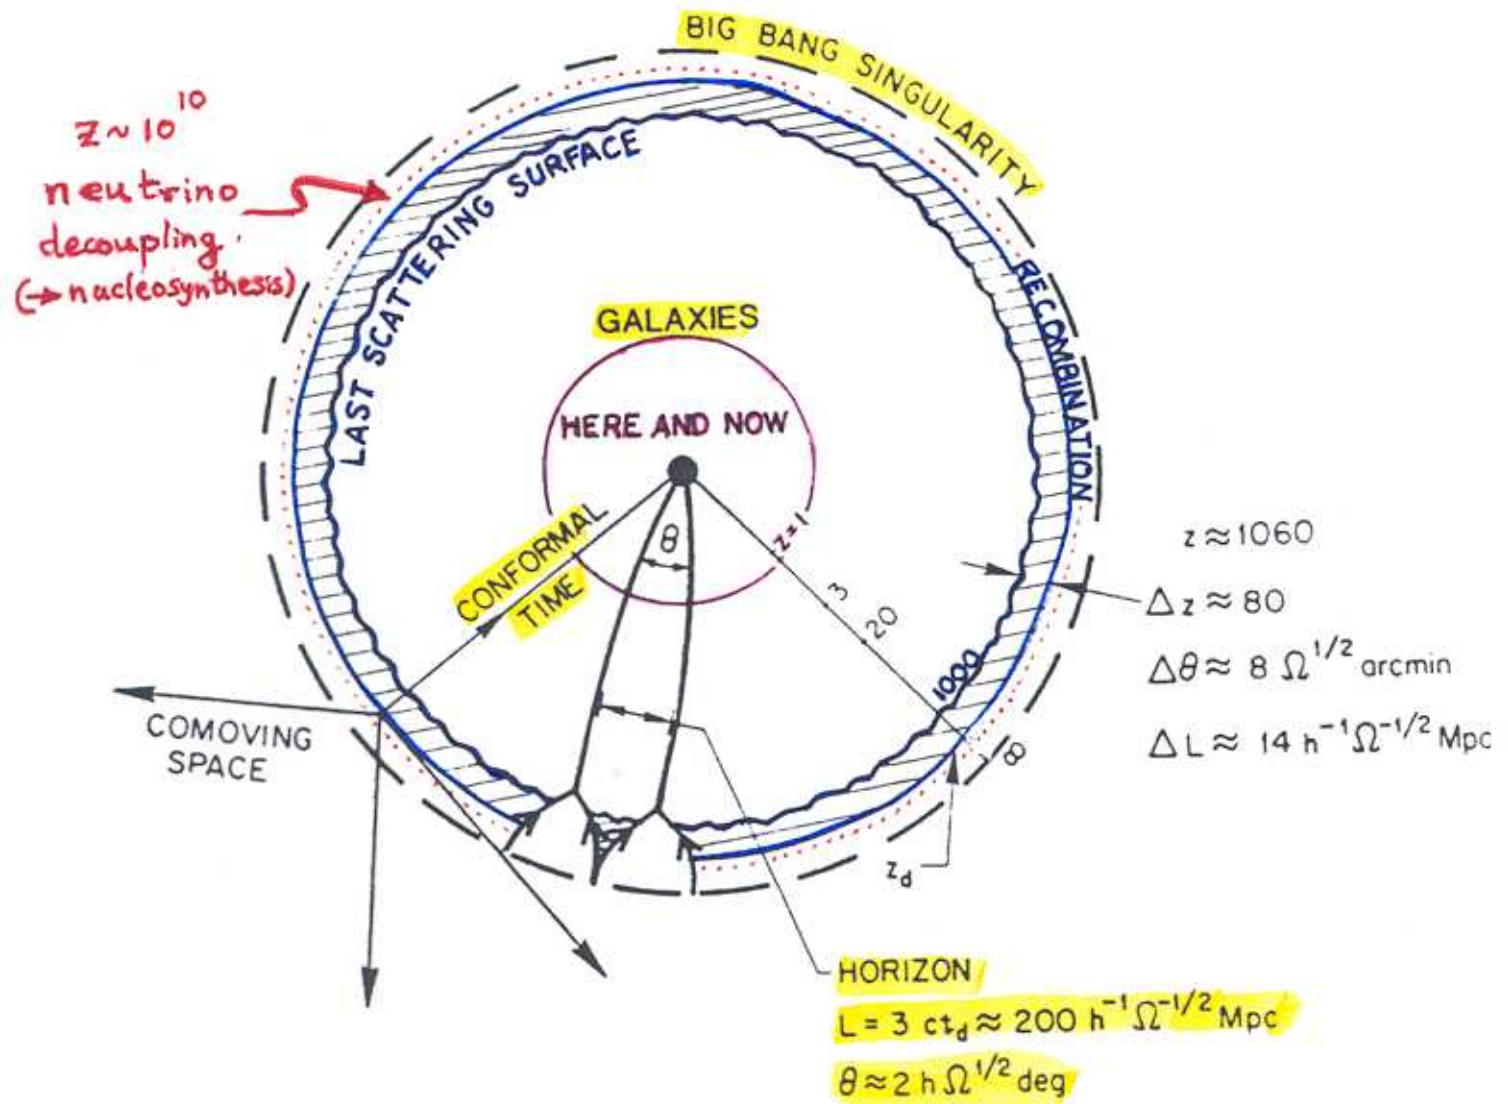 BIG BANG SINGULARITY
z ~ 10^10
neutrino
decoupling
(→ nucleosynthesis)
LAST SCATTERING SURFACE
RECOMBINATION
GALAXIES
HERE AND NOW
θ
z=1
3
20
1000
∞
CONFORMAL
TIME
COMOVING
SPACE
z ≈ 1060
Δz ≈ 80
Δθ ≈ 8 Ω^1/2 arcmin
ΔL ≈ 14 h^-1 Ω^-1/2 Mpc
z_d
HORIZON
L = 3 ct_d ≈ 200 h^-1 Ω^-1/2 Mpc
θ ≈ 2 h Ω^1/2 deg